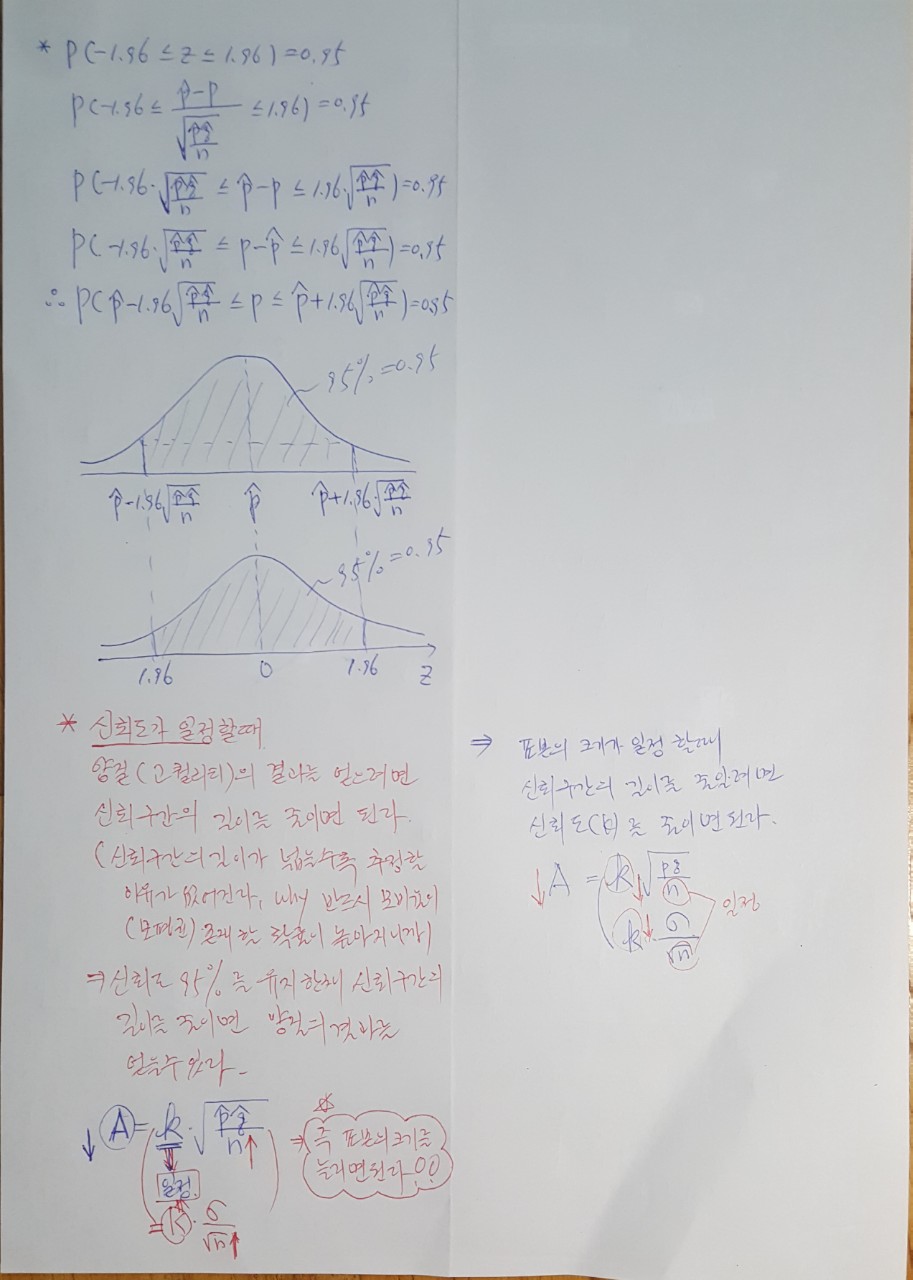 * P(-1.96 ≤ z ≤ 1.96) = 0.95
P(-1.96 ≤ (p̂-p)/√(p̂q̂/n) ≤ 1.96) = 0.95
P(-1.96·√(p̂q̂/n) ≤ p̂-p ≤ 1.96·√(p̂q̂/n)) = 0.95
P(-1.96·√(p̂q̂/n) ≤ p-p̂ ≤ 1.96√(p̂q̂/n)) = 0.95
∴ P(p̂-1.96√(p̂q̂/n) ≤ p ≤ p̂+1.96√(p̂q̂/n)) = 0.95
95% = 0.95
p̂-1.96√(p̂q̂/n) p̂ p̂+1.96√(p̂q̂/n)
95% = 0.95
1.96 0 1.96 z
* 신뢰도가 일정할때
양질(고퀄리티)의 결과를 얻으려면
신뢰구간의 길이를 줄이면 된다.
(신뢰구간의 길이가 넓을수록 추정할
이유가 없어진다, why 반드시 모비율이
(모평균) 존재할 확률이 높아지니까)
⇒ 신뢰도 95%를 유지한채 신뢰구간의
길이를 줄이면 양질의 결과를
얻을수 있다.
↓ A = k·√(p̂q̂/n↑)
일정
= k·σ/√n↑
⇒ 즉 표본의 크기를
늘리면 된다!!
⇒ 표본의 크기가 일정 할때
신뢰구간의 길이를 줄일려면
신뢰도(k)를 줄이면 된다.
↓A = k↓√(p̂q̂/n)
k↓·σ/√n
일정